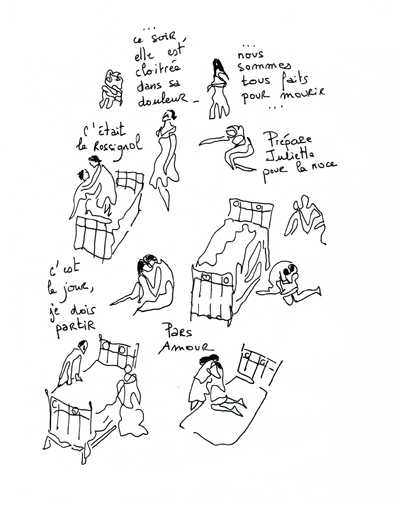 ...
ce soir,
elle est
cloîtrée
dans sa
douleur_
...
nous
sommes
tous faits
pour mourir
...
C'était
le Rossignol
Prépare
Julietta
pour la noce
c'est
le jour,
je dois
partir
Pars
Amour